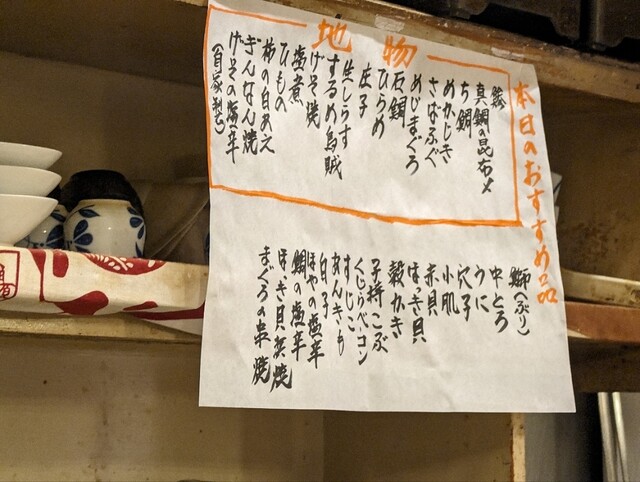 本日のおすすめ品
地物
鯵
真鯛の昆布〆
ち鯛
めかじき
さばふぐ
めじまぐろ
石鯛
ひらめ
庄子
生しらす
するめ烏賊
げそ焼
塩煮
ひもの
柿の白あえ
ぎんなん焼
げその塩辛
(自家製)
鰤(ぶり)
中とろ
うに
穴子
小肌
赤貝
ほっき貝
殻かき
子持こぶ
くじらベーコン
すじこ
あんきも
白子
ほやの塩辛
鯛の塩辛
ほっき貝炙焼
まぐろの串焼